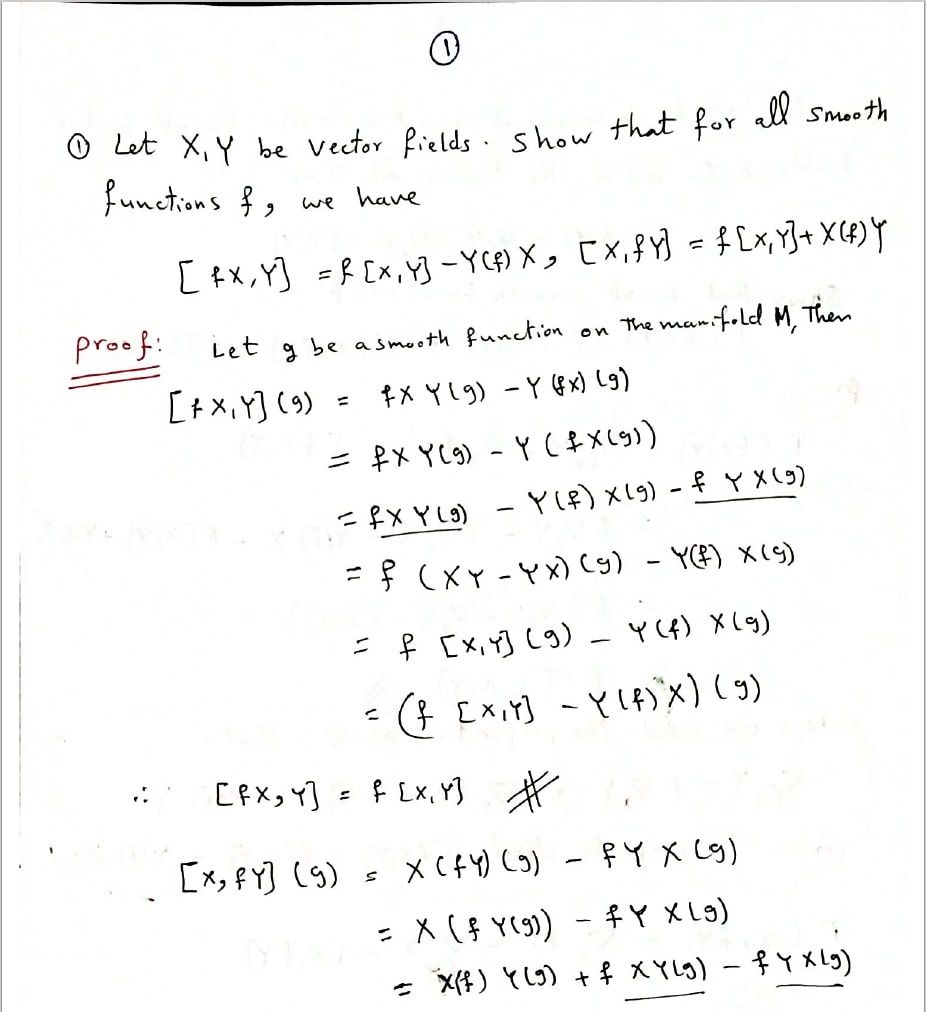 ①
① Let X,Y be vector fields. Show that for all smooth
functions f, we have
[fX,Y] = f[X,Y] - Y(f)X, [X,fY] = f[X,Y] + X(f)Y
proof: Let g be a smooth function on the manifold M, Then
[fX,Y](g) = fX Y(g) - Y(fX)(g)
= fX Y(g) - Y(fX(g))
= fX Y(g) - Y(f) X(g) - f Y X(g)
= f (XY - YX)(g) - Y(f) X(g)
= f [X,Y](g) - Y(f) X(g)
= (f [X,Y] - Y(f)X)(g)
∴ [fX,Y] = f[X,Y] #
[X,fY](g) = X(fY)(g) - fY X(g)
= X(f Y(g)) - fY X(g)
= X(f) Y(g) + f XY(g) - fYX(g)